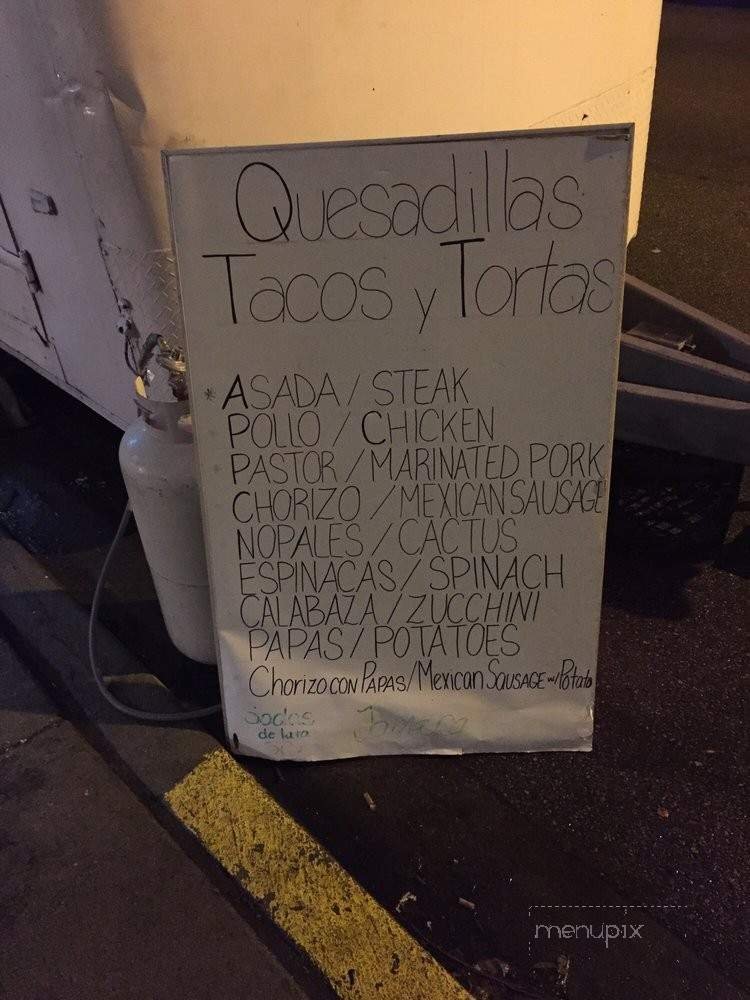 Quesadillas
Tacos y Tortas
* ASADA / STEAK
POLLO / CHICKEN
PASTOR / MARINATED PORK
CHORIZO / MEXICAN SAUSAGE
NOPALES / CACTUS
ESPINACAS / SPINACH
CALABAZA / ZUCCHINI
PAPAS / POTATOES
Chorizo con Papas / Mexican Sausage w/ Potato
Sodas
de lata
menupix